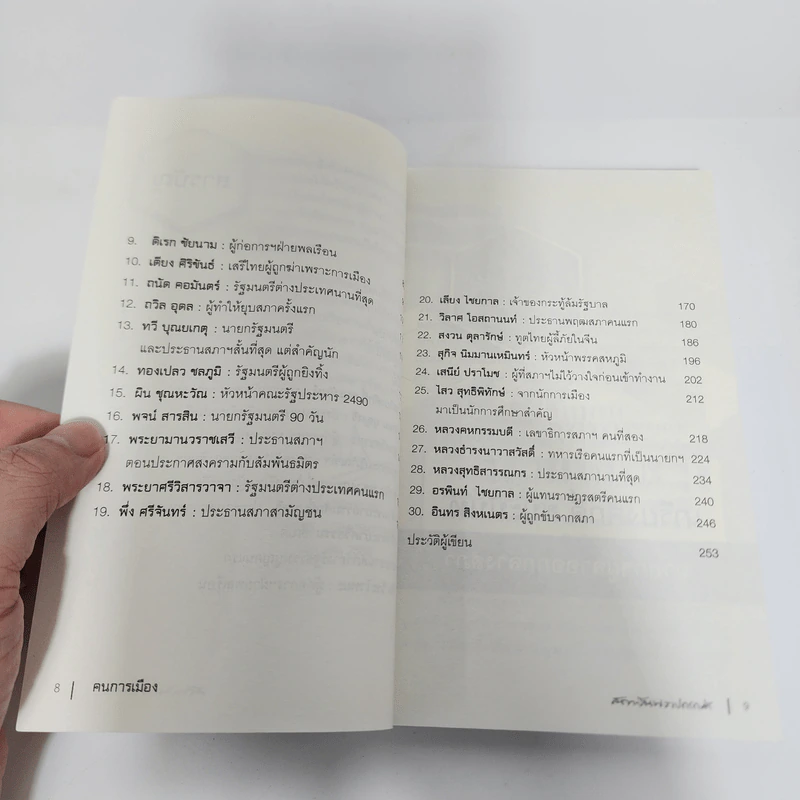 9. ดิเรก ชัยนาม : ผู้ก่อการฯฝ่ายพลเรือน
10. เตียง ศิริขันธ์ : เสรีไทยผู้ถูกฆ่าเพราะการเมือง
11. ถนัด คอมันตร์ : รัฐมนตรีต่างประเทศนานที่สุด
12. ถวิล อุดล : ผู้ทำให้ยุบสภาครั้งแรก
13. ทวี บุณยเกตุ : นายกรัฐมนตรี
และประธานสภาฯสั้นที่สุด แต่สำคัญนัก
14. ทองเปลว ชลภูมิ : รัฐมนตรีผู้ถูกยิงทิ้ง
15. ผิน ชุณหะวัณ : หัวหน้าคณะรัฐประหาร 2490
16. พจน์ สารสิน : นายกรัฐมนตรี 90 วัน
17. พระยามานวราชเสวี : ประธานสภาฯ
ตอนประกาศสงครามกับสัมพันธมิตร
18. พระยาศรีวิสารวาจา : รัฐมนตรีต่างประเทศคนแรก
19. พึ่ง ศรีจันทร์ : ประธานสภาสามัญชน
8 | คนการเมือง
20. เลียง ไชยกาล : เจ้าของกระทู้ล้มรัฐบาล 170
21. วิลาศ โอสถานนท์ : ประธานพฤฒสภาคนแรก 180
22. สงวน ตุลารักษ์ : ทูตไทยผู้ลี้ภัยในจีน 186
23. สุกิจ นิมมานเหมินทร์ : หัวหน้าพรรคสหภูมิ 196
24. เสนีย์ ปราโมช : ผู้ที่สภาฯไม่ไว้วางใจก่อนเข้าทำงาน 202
25. ไสว สุทธิพิทักษ์ : จากนักการเมือง 212
มาเป็นนักการศึกษาสำคัญ
26. หลวงคหกรรมบดี : เลขาธิการสภาฯ คนที่สอง 218
27. หลวงธำรงนาวาสวัสดิ์ : ทหารเรือคนแรกที่เป็นนายกฯ 224
28. หลวงสุทธิสารรณกร : ประธานสภานานที่สุด 234
29. อรพินท์ ไชยกาล : ผู้แทนราษฎรสตรีคนแรก 240
30. อินทร สิงหเนตร : ผู้ถูกขับจากสภา 246
ประวัติผู้เขียน 253
| 9